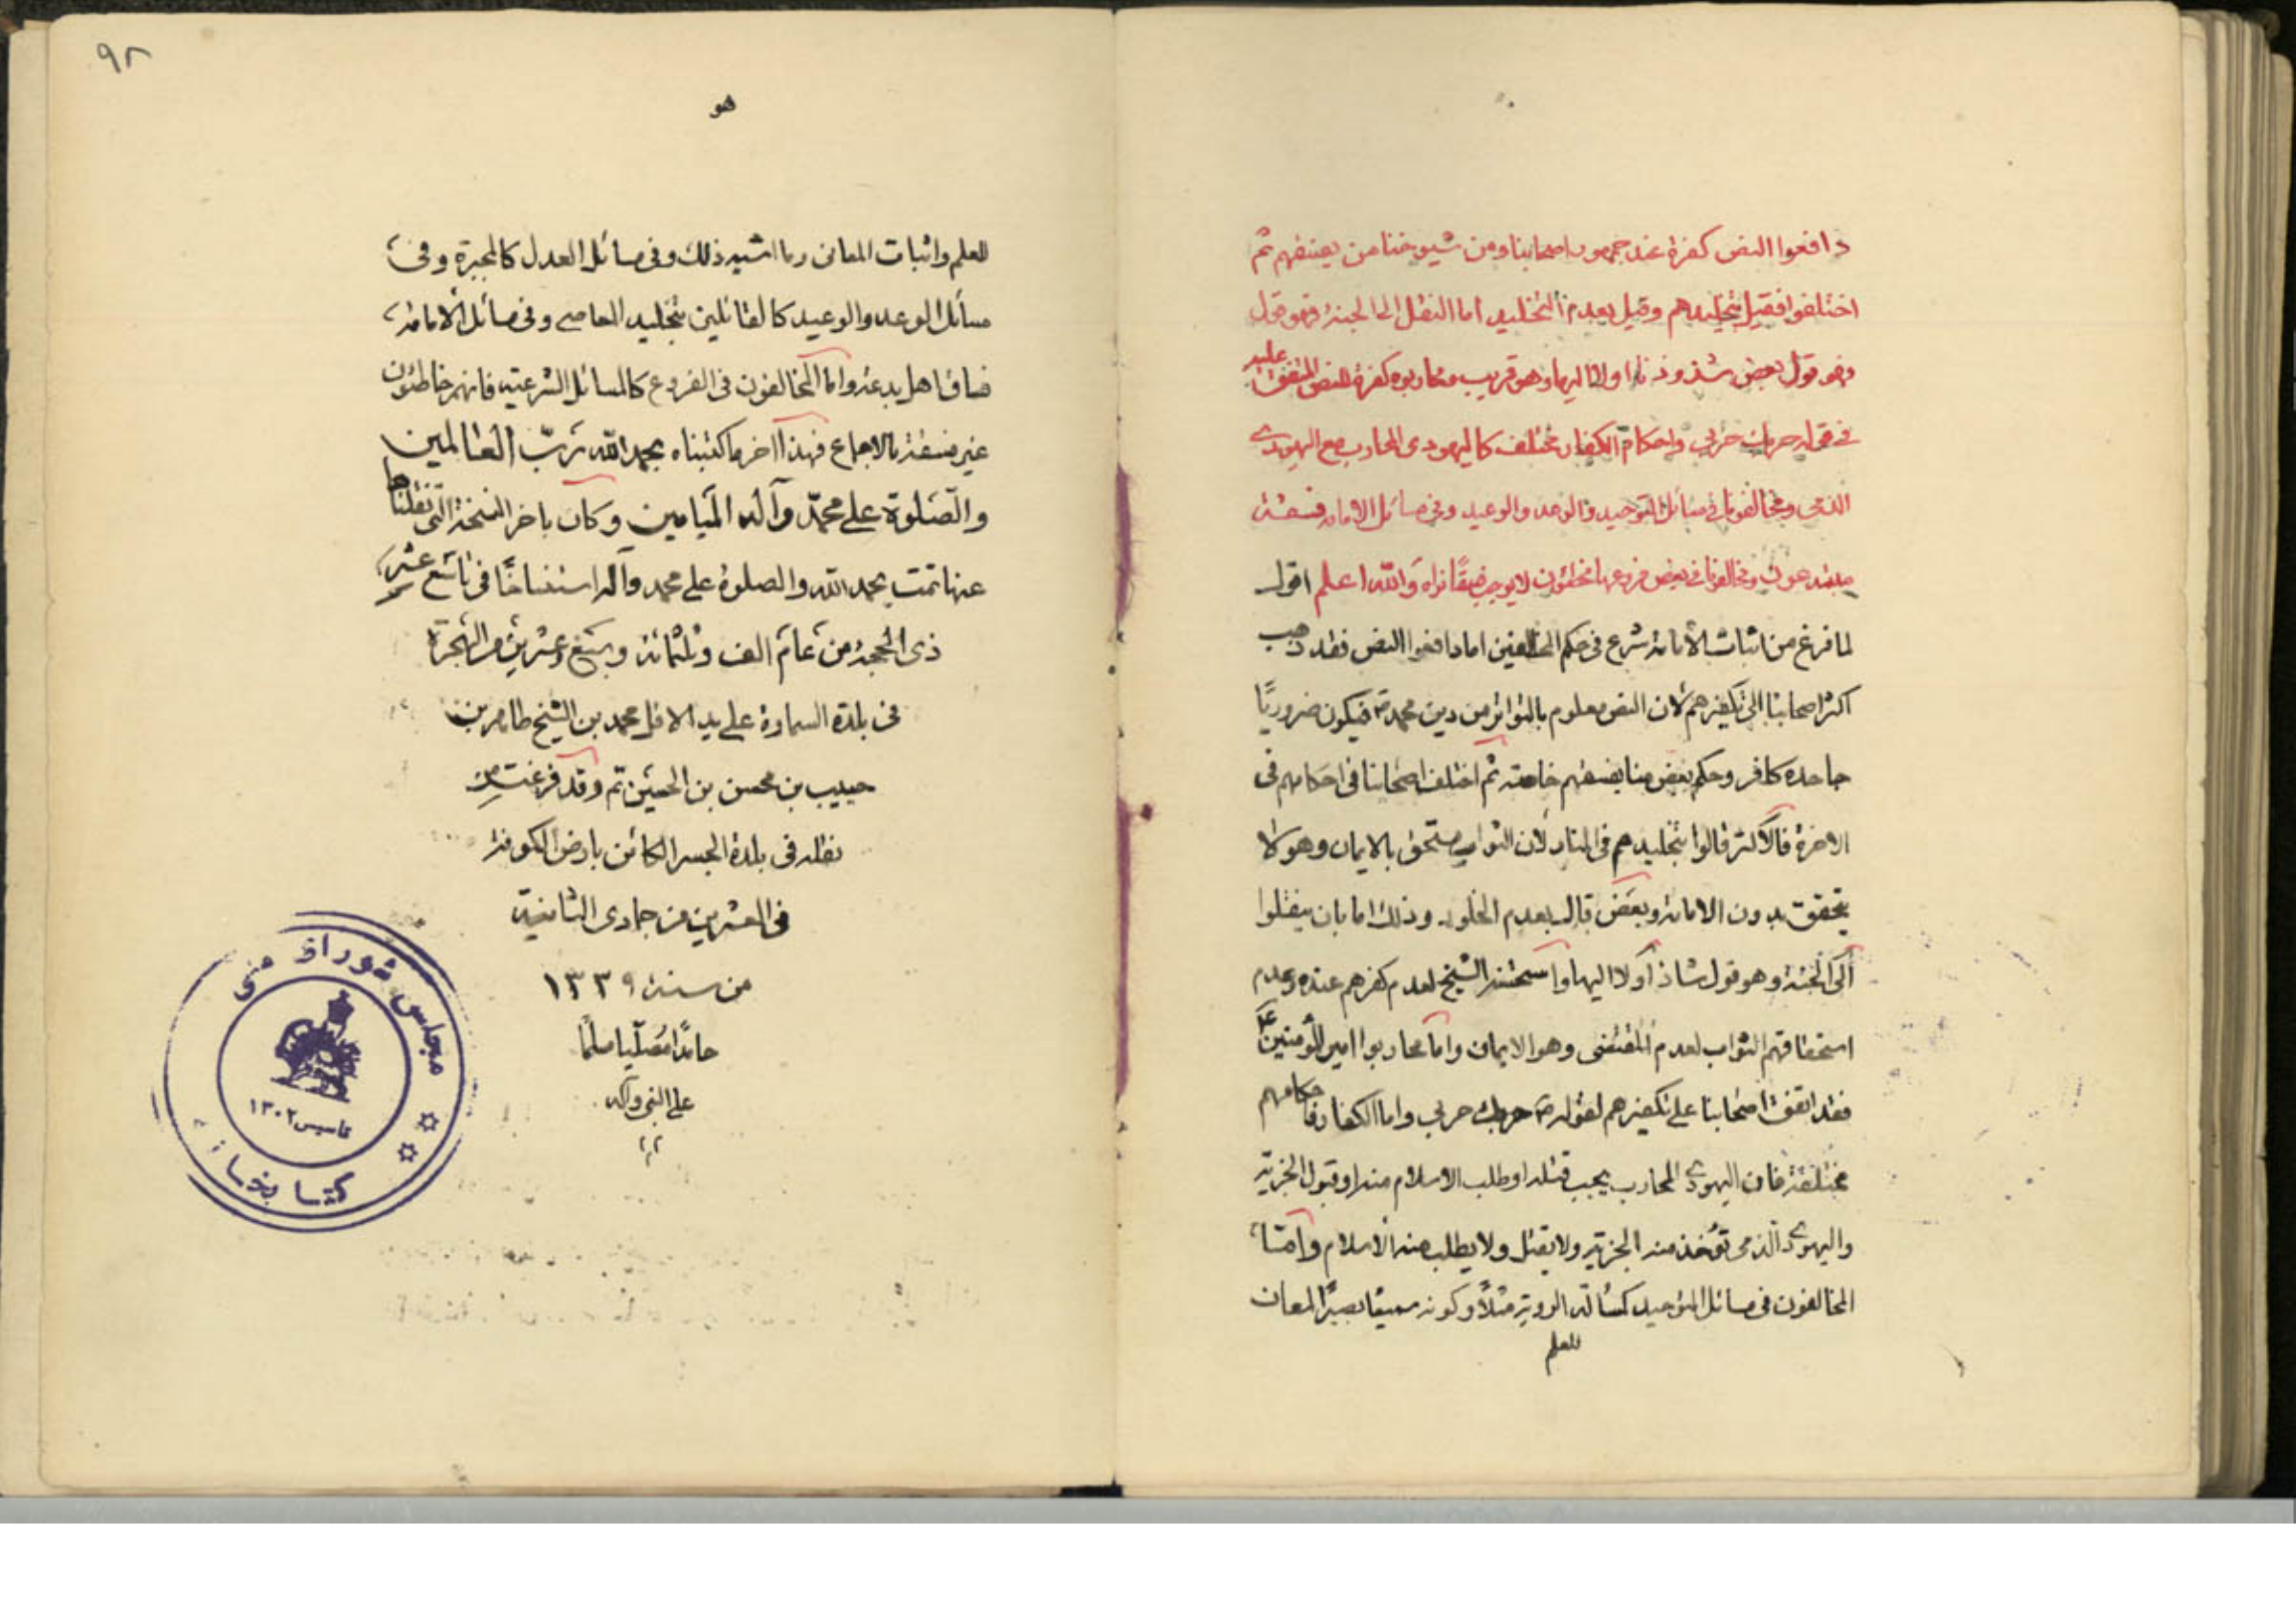 دافعوا النص كفرة عند جمهور اصحابنا ومن شيوخنا من يفسقهم ثم
اختلفوا فقيل بتخليدهم وقيل بعدم التخليد اما النقل الى الجنة فهو قول
وهو قول بعض شذوذنا او لا اليها وهو قريب ومحاربوه كفرة للنص المتفق عليه
في قوله حربك حربي واحكام الكفار تختلف كاليهودى المحارب مع اليهودي
الذمى ومخالفونا في مسائل التوحيد والوعد والوعيد وفي مسائل الامامة فسقة
مبتدعون ومخالفونا في بعض فروعها مخطئون لا يوجب فسقًا نراه والله اعلم اقول
لما فرغ من اثبات الامامة شرع في حكم المخالفين اما دافعوا النص فقد ذهب
اكثر اصحابنا الى تكفيرهم لان النص معلوم بالتواتر من دين محمد ص فيكون ضروريًا
جاحده كافر وحكم بعض منا بفسقهم خاصة ثم اختلف اصحابنا في احكامهم في
الاخرة فالاكثر قالوا بتخليدهم في النار لان الثواب مستحق بالايمان وهو لا
يتحقق بدون الامامة وبعض قال بعدم الخلود وذلك اما بان ينقلوا
الى الجنة وهو قول شاذ او لا اليها واستحسنه الشيخ لعدم كفرهم عنده وعدم
استحقاقهم الثواب لعدم المقتضى وهو الايمان واما محاربوا امير المؤمنين ع
فقد اتفق اصحابنا على تكفيرهم لقوله ص حربك حربي واما الكفار فاحكامهم
مختلفة فان اليهودي المحارب يجب قتله او طلب الاسلام منه او قبول الجزية
واليهودي الذمى تؤخذ منه الجزية ولا يقتل ولا يطلب منه الاسلام وامّا
المخالفون في مسائل التوحيد كمسألة الروية مثلًا وكونه سميعًا بصيرًا لمعان
للعلم
٩٢
هو
للعلم واثبات المعانى وما اشبه ذلك وفى مسائل العدل كالمجبرة وفى
مسائل الوعد والوعيد كالقائلين بتخليد العاصى وفى مسائل الامامة
فساق اهل بدعة واما المخالفون فى الفروع كالمسائل الشرعية فانهم خاطئون
غير فسقة بالاجماع فهذا اخر ما كتبناه بحمد الله ربّ العالمين
والصّلوة على محمّد وآله الميامين وكان باخر النسخة التى نقلناها
عنها تمت بحمد الله والصلوة على محمد وآله استنساخًا فى تاسع عشر
ذى الحجة من عام الف وثلثمائة وسبع وعشرين من الهجرة
فى بلدة السماوة على يد الاقل محمد بن الشيخ طاهر بن
حبيب بن محسن بن الحسين تم وقد فرغت من
نقله فى بلدة الجسر الكائن بارض الكوفة
فى العشرين من جمادى الثانية
من سنة ١٣٣٩
حامدًا مصلّيا مسلمًا
على النبى وآله
مجلس شوراى ملى
تاسيس ١٣٠٢
كتابخانه